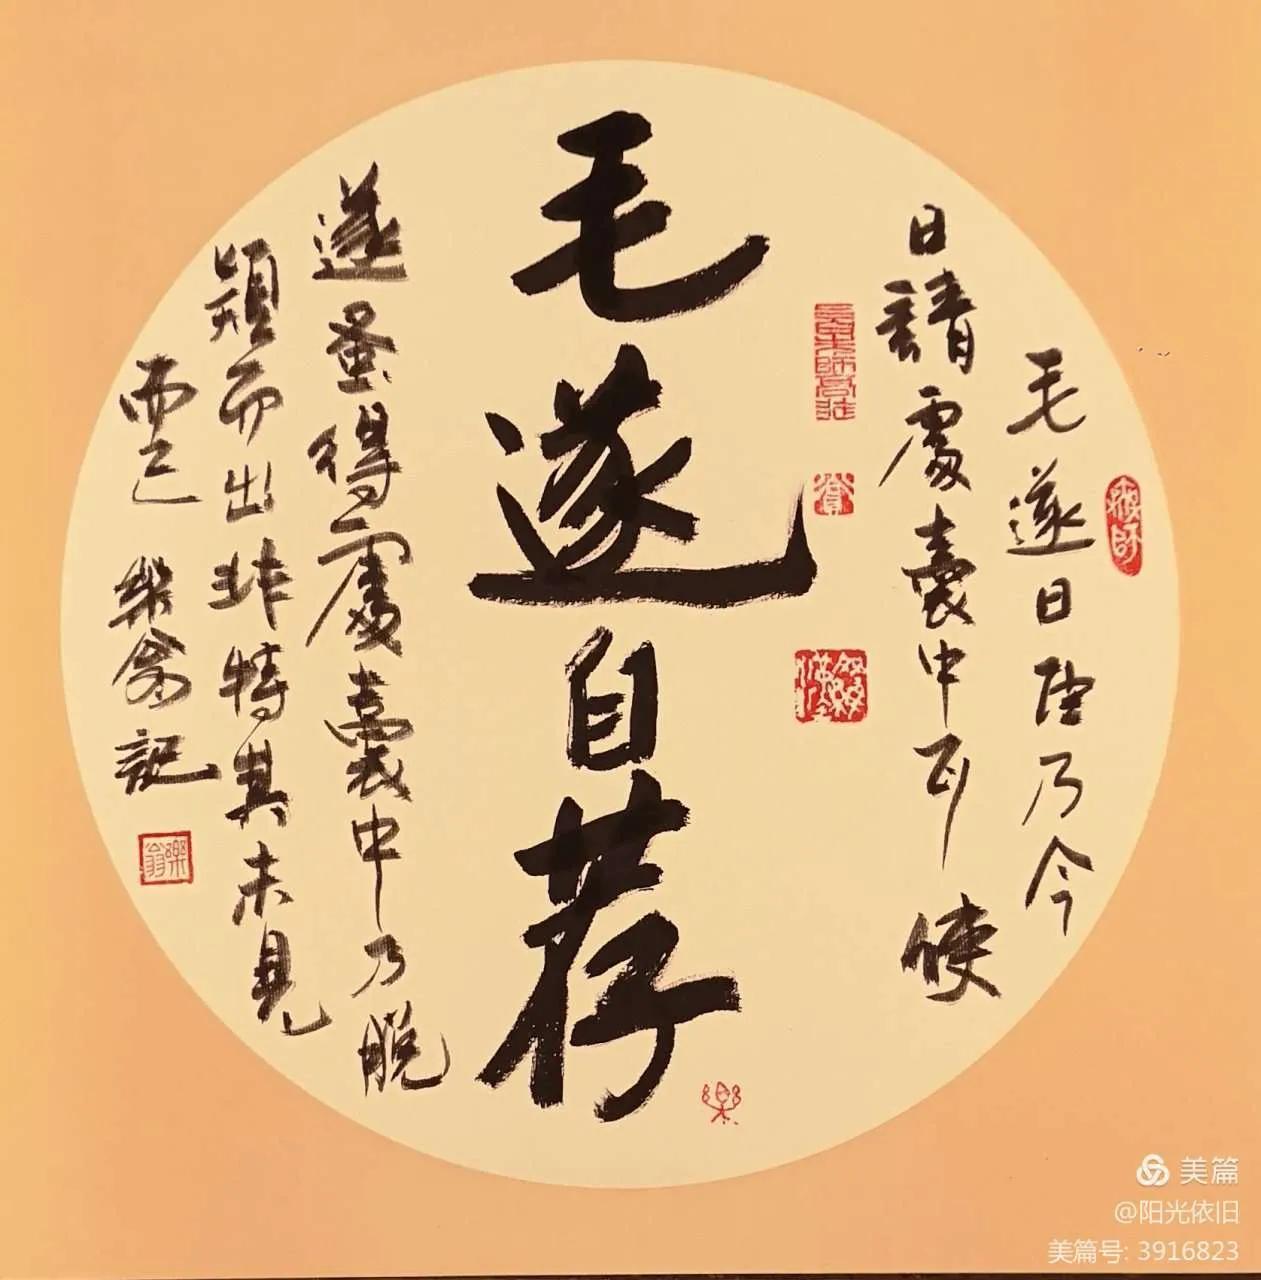 毛遂曰臣乃今
日請處囊中耳使
毛遂自荐
遂蚤得處囊中乃脱
穎而出非特其末見
而已 樂翁記
樂翁
樂
美篇
@阳光依旧
美篇号: 3916823